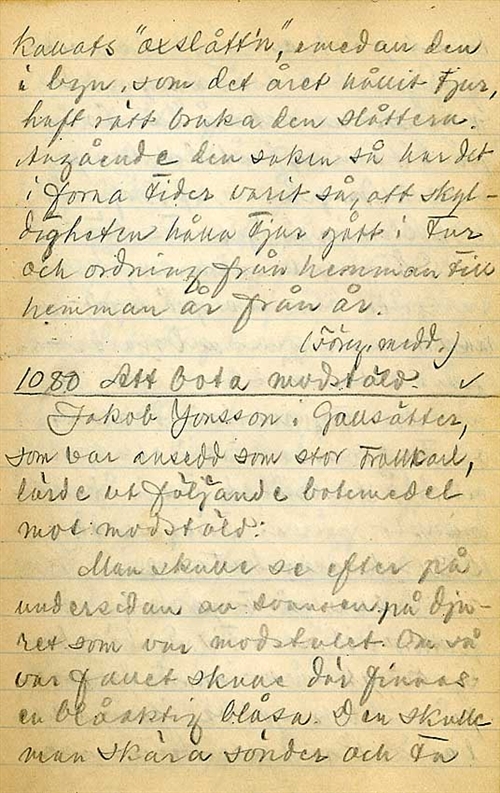 kallats "oxslått'n", emedan den
i byn, som det året hållit Tjur,
haft rätt bruka den slåttern.
Angående den saken så har det
i forna Tider varit så, att skyl-
digheten hålla Tjur gått i Tur
och ordning från hemman Till
hemman år från år.
(Föreg. medd.)
1080 Att bota modstöld. ✓
Jakob Jonsson i Gallsätter,
som var ansedd som stor Trollkarl,
lärde ut följande botemedel
mot modstöld:
Man skulle se efter på
undersidan av svansen på dju-
ret som var modstulet. Om så
var fallet skulle där finnas
en blåaktig blåsa. Den skulle
man skära sönder och Ta